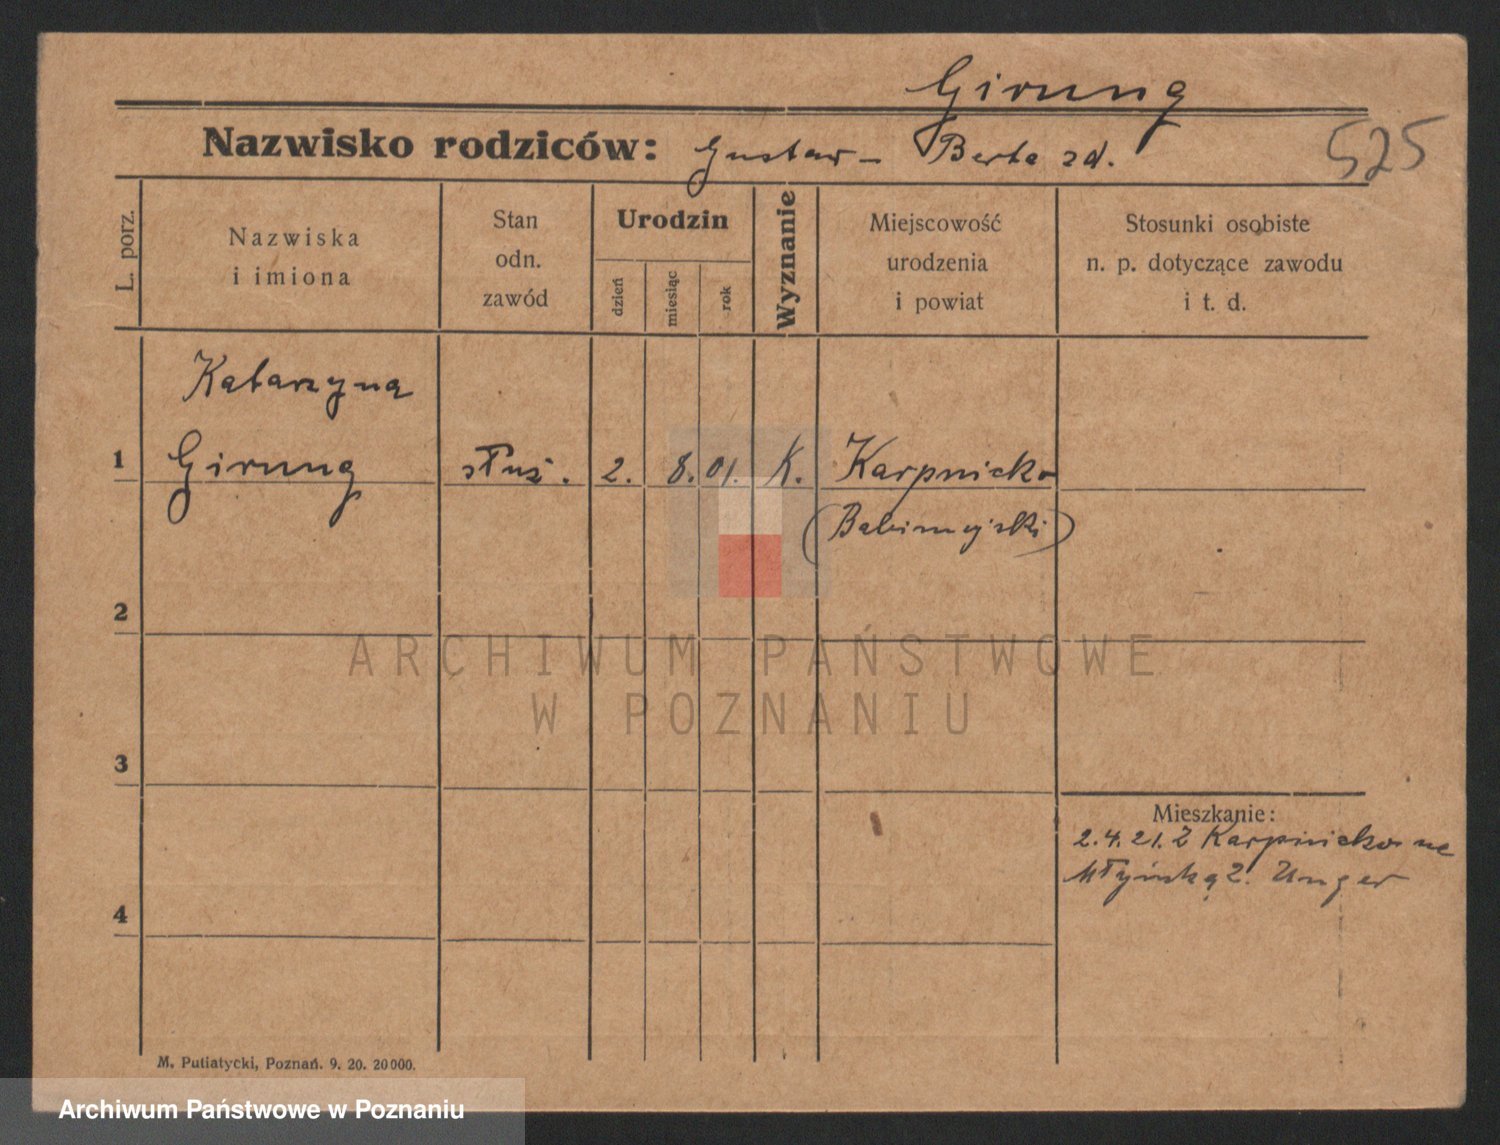 Girung
Nazwisko rodziców: Gustaw - Berta zd.
525
L. porz.
Nazwiska
i imiona
Stan
odn.
zawód
Urodzin
dzień
miesiąc
rok
Wyznanie
Miejscowość
urodzenia
i powiat
Stosunki osobiste
n. p. dotyczące zawodu
i t. d.
Katarzyna
1 Girung służ. 2. 8. 01. K. Karpnicko
(Babimojski)
2
ARCHIWUM PAŃSTWOWE
W POZNANIU
3
Mieszkanie:
2.4.21. Z Karpnicko na
Młyńską 2. Unger
4
M. Putiatycki, Poznań. 9. 20. 20000.
Archiwum Państwowe w Poznaniu